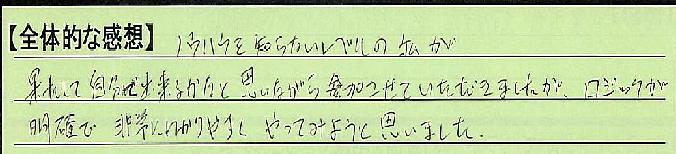 【全体的な感想】 ノウハウを知らないレベルの私が
果たして自分で出来るかなと思いながら参加させていただきましたが、ロジックが
明確で非常にわかりやすく やってみようと思いました.